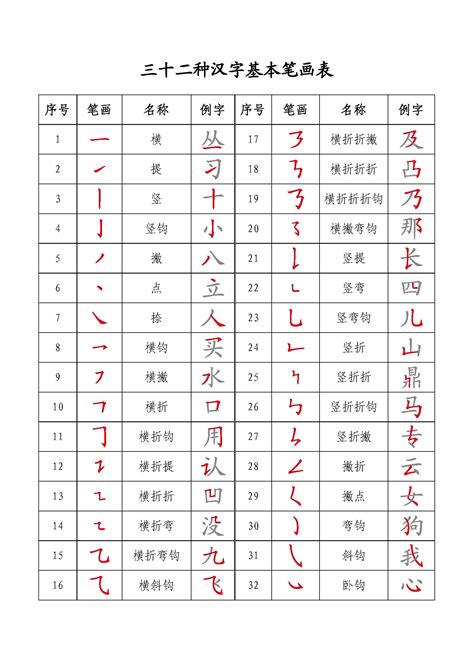 三十二种汉字基本笔画表
序号 笔画 名称 例字 序号 笔画 名称 例字
1 ㇐ 横 丛 17 ㇋ 横折折撇 及
2 ㇀ 提 习 18 ㇎ 横折折折 凸
3 ㇑ 竖 十 19 ㇡ 横折折折钩 乃
4 ㇚ 竖钩 小 20 ㇌ 横撇弯钩 那
5 ㇒ 撇 八 21 ㇙ 竖提 长
6 ㇔ 点 立 22 ㇄ 竖弯 四
7 ㇏ 捺 人 23 ㇟ 竖弯钩 儿
8 ㇖ 横钩 买 24 ㇗ 竖折 山
9 ㇇ 横撇 水 25 ㇞ 竖折折 鼎
10 ㇕ 横折 口 26 ㇉ 竖折折钩 马
11 ㇆ 横折钩 用 27 ㇘ 竖折撇 专
12 ㇊ 横折提 认 28 ㇜ 撇折 云
13 ㇅ 横折折 凹 29 ㇛ 撇点 女
14 ㇍ 横折弯 没 30 ㇁ 弯钩 狗
15 ㇈ 横折弯钩 九 31 ㇂ 斜钩 我
16 ⺄ 横斜钩 飞 32 ㇃ 卧钩 心